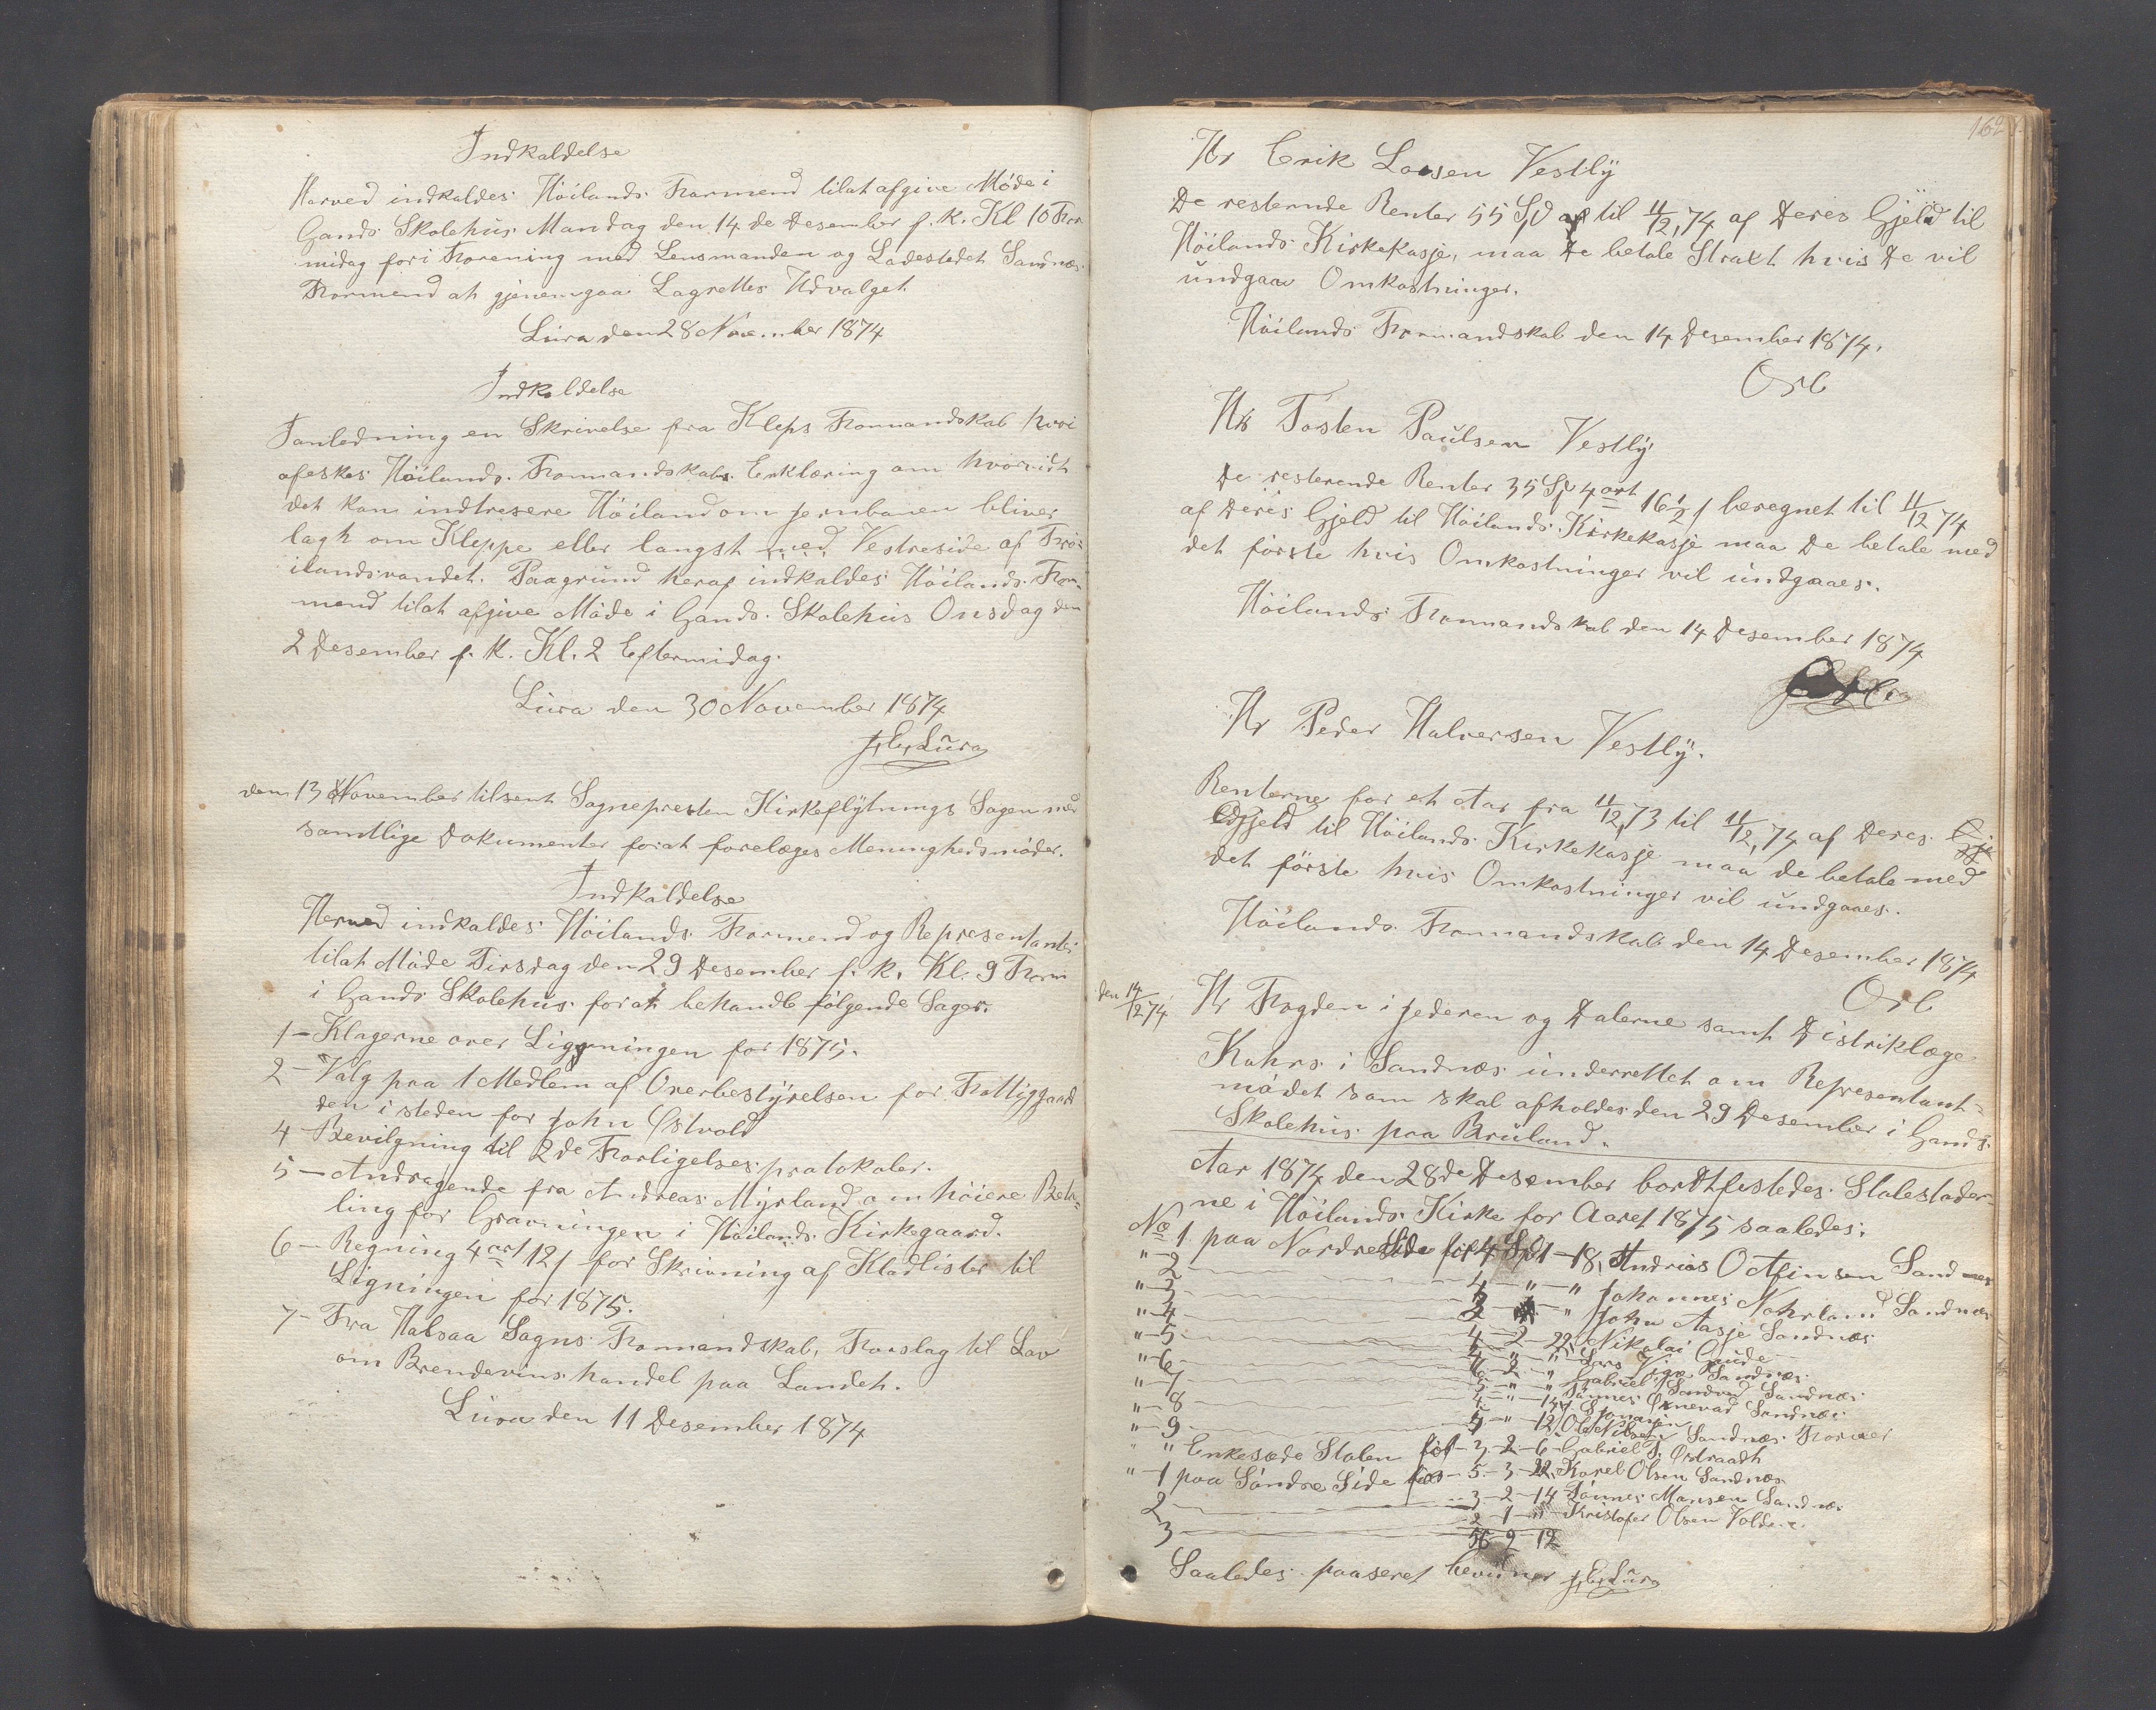 Indkaldelse
Herved indkaldes Höilands Formend tilat afgive Møde i
Gands Skolehus Mandag den 14 de Desember f. k. Kl 10 For
midag for i Forening med Lensmanden og Ladestedet Sandnæs
Formend at gjenemgaa Lagrettes Udvalget
Lura den 28 November 1874
Indkaldelse
I anledning en Skrivelse fra Kleps Formandskab hvori
afeskes Höilands Formandskabs Erklæring om hvorvidt
det kan indtresere Höiland om jernbanen bliver
lagh om Kleppe eller langst med Vestreside af Frö-
ilandsvandet. Paagrund heraf indkaldes Höilands For-
mend tilat afgive Møde i Gands Skolehus Onsdag den
2 Desember f. k. Kl. 2 Eftermidag.
Lura den 30 November 1874
J. E. Lura
den 13 November tilsent Sognepresten Kirkeflytnings Sagen med
samtlige Dokumenter forat forelæges Menighedsmöder.
Indkaldelse
Herved indkaldes Höilands Formend og Representanter
tilat Møde Tirsdag den 29 Desember f. k. Kl. 9 Form
i Gands Skolehus forat behandle følgende Sager.
1 - Klagerne over Ligningen for 1875.
2 - Valg paa 1 Medlem af Overbestyrelsen for Fattiggaard
den i steden for John Østvold
4 - Bevilgning til 2de Forligelses protokoler.
5 - Andragende fra Andreas Myrland om höiere Beta-
ling for Gravningen i Höilands Kirkegaard.
6 - Regning 4 ort 12 ʃ for Skrivning af Kladlister til
Ligningen for 1875.
7 - Fra Habsaa Sogns Formandskab, Forslag til Lov
om Brendevinshandel paa Landet.
Lura den 11 Desember 1874
162
Hr Erik Larsen Vestly
De resternde Renter 55 Spd til 11/12, 74 af Deres Gjeld til
Höilands Kirkekasje, maa De betale Straxt hvis De vil
undgaa Omkostninger.
Höilands Formandskab den 14 Desember 1874.
Hr Tosten Paulsen Vestly
De resterende Renter 35 Sp 4 ort 16 1/2 ʃ beregnet til 11/12 74
af Deres Gjeld til Höilands Kirkekasje maa De betale med
det förste hvis Omkostninger vil undgaaes.
Höilands Formandskab den 14 Desember 1874
Hr Peder Halversen Vestly.
Renterne for et Aar fra 11/12, 73 til 11/12, 74 af Deres
Gjeld til Höilands Kirkekasje maa de betale med
det förste hvis Omkostninger vil undgaaes.
Höilands Formandskab den 14 Desember 1874
den 14/12 74
Hr Fogden i Jederen og Dalerne samt Distriklæge
Kahrs i Sandnæs underrettet om Representant-
mödet som skal afholdes den 29 Desember i Gands
Skolehus paa Bruland.
Aar 1874 den 28de Desember bortfestedes Stolestader-
ne i Höilands Kirke for Aaret 1875 saaledes:
No 1 paa Nordre Side for 4 Spd 1 - 18, Andrias O Asfinsen Sandnes
" - 2 4 - " - " Johannes Norland Sandnæs
" - 3 2 - " John Aasje Sandnæs
" - 4 4 - 2 - 22, Nikolai Gude
" - 5 4 - " - " Lars Vigre Sandnæs
" - 6 6 - 2 - " Gabriel Sandved Sandnæs
" - 7 5 - " - " Tönnes Ornevad Sandnæs
" - 8 4 - " - 14
" - 9 5 - " - 12, Ole Nilsen Sandnæs Farver
" " Enkesæde Stolen for - 3 - 2 - 6 - Gabriel T. Østraadt
" - 1 paa Söndre Side for - 5 - 3 - 22, Karel Olsen Sandnæs
2 3 - 2 - 14 Tönnes Mansen Sandnæs
3 2 - 1 - " - Kristofer Olsen Volden
56 2 12
Saaledes paaseret bevidner J. E. Lura